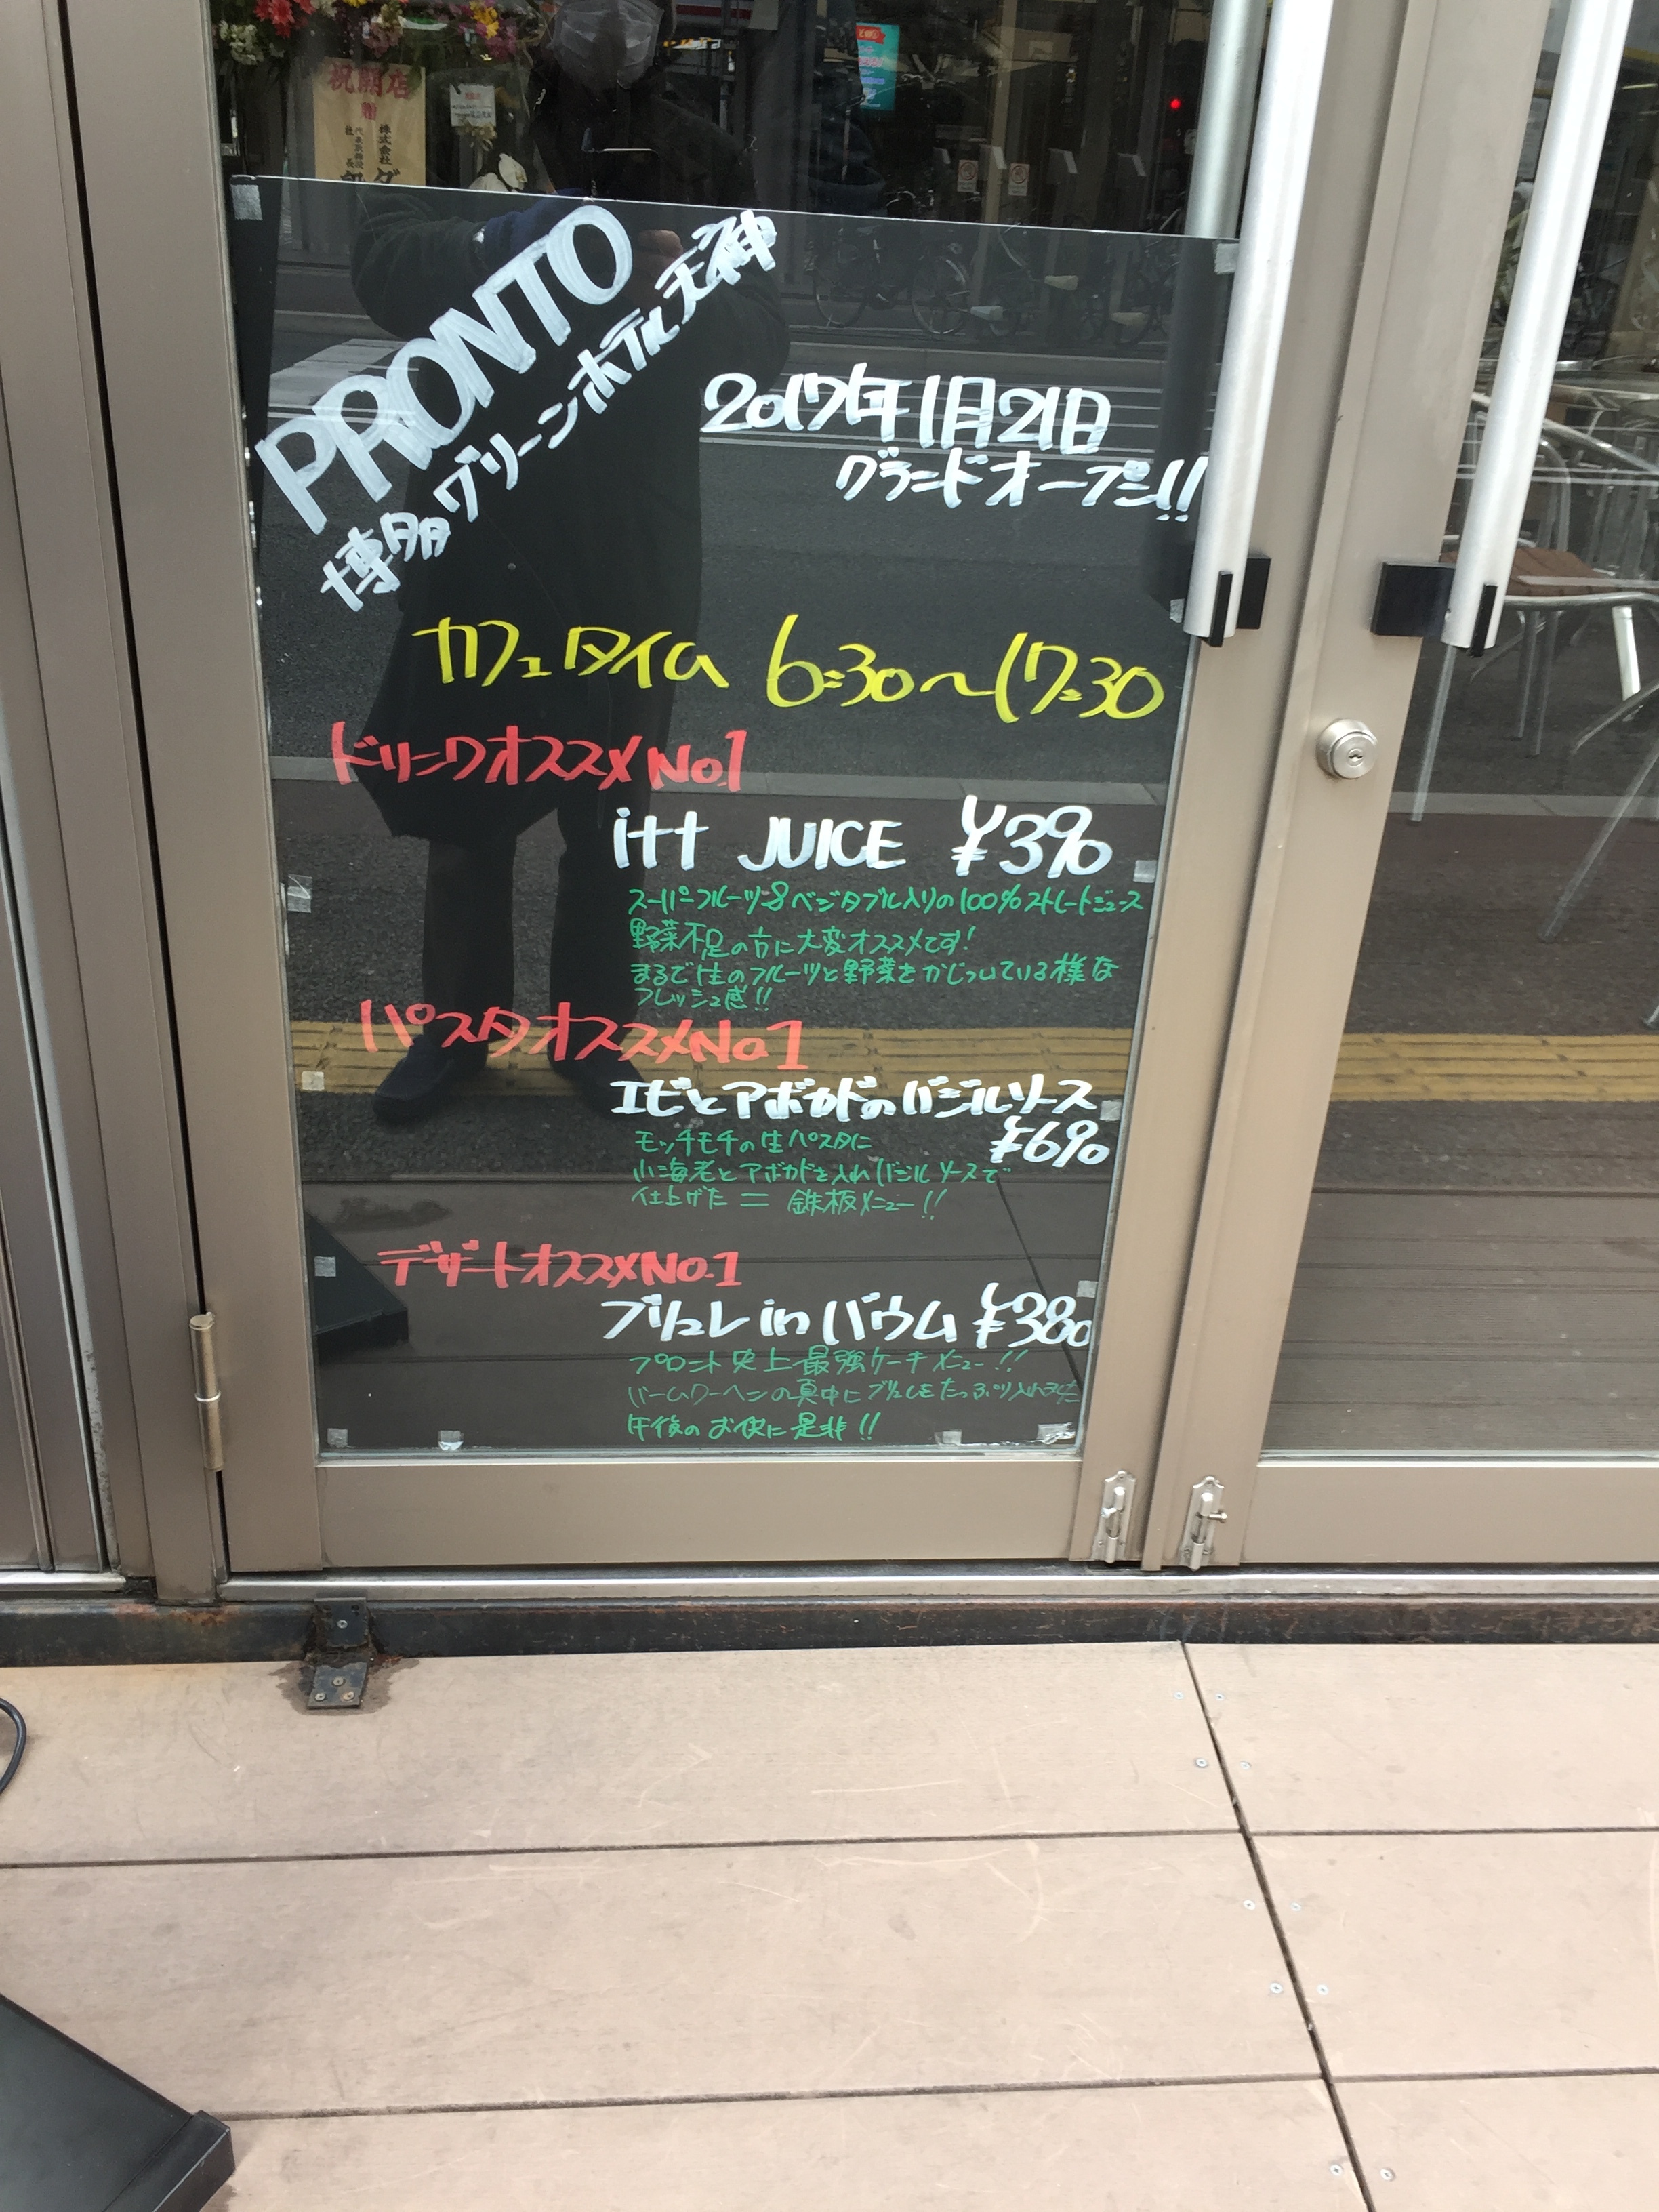 祝開店
株式会社
PRONTO
博多グリーンホテル天神
2017年1月21日
グランドオープン!!
カフェタイム 6:30〜17:30
ドリンクオススメNo.1
itt JUICE ¥390
スーパーフルーツ&ベジタブル入りの100%ストレートジュース
野菜不足の方に大変オススメです!
まるで生のフルーツと野菜をかじっている様な
フレッシュ感!!
パスタオススメNo.1
エビとアボカドのバジルソース
¥690
モッチモチの生パスタに
小海老とアボカドを入れバジルソースで
仕上げた 鉄板メニュー!!
デザートオススメNo.1
ブリュレinバウム ¥380
プロント史上最強ケーキメニュー!!
バームクーヘンの真中にブリュレをたっぷり入れました
午後のお供に是非!!